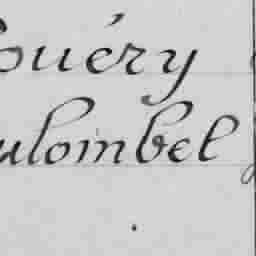 ouéry
ulombel